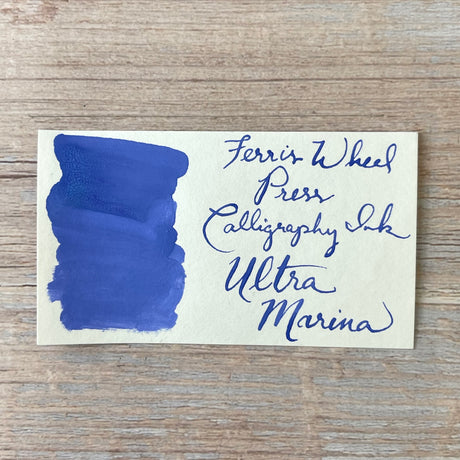 Ferris Wheel
Press
Calligraphy Ink
Ultra
Marina